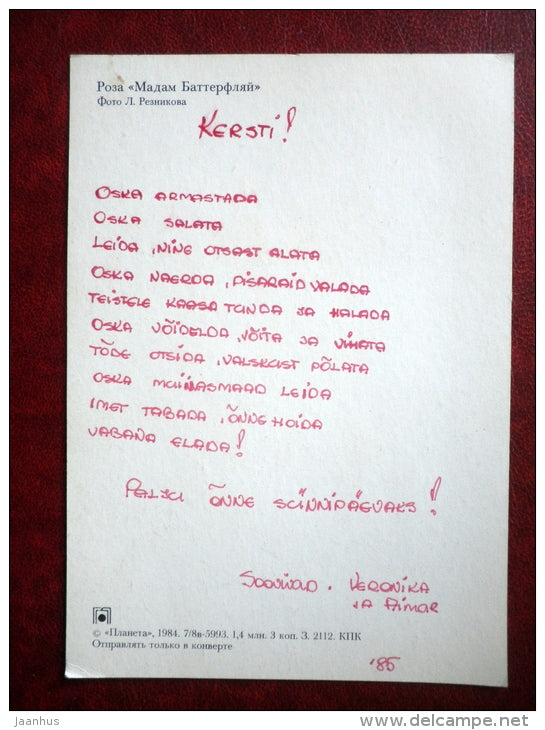 Роза «Мадам Баттерфляй»
Фото Л. Резникова
KERSTI!
OSKA ARMASTADA
OSKA SALATA
LEIDA, NING OTSAST ALATA
OSKA NAERDA, PISARAID VALADA
TEISTELE KAASA TUNDA JA HALADA
OSKA VÕIDELDA, VÕITA JA VIHATA
TÕDE OTSIDA, VALSKUST PÕLATA
OSKA MUINASMAAD LEIDA
IMET TABADA, ÕNNE HOIDA
VABANA ELADA!
PALJU ÕNNE SÜNNIPÄEVAKS!
SOOVIVAD. VERONIKA
JA AIMAR
© «Планета», 1984. 7/8в-5993. 1,4 млн. 3 коп. З. 2112. КПК
Отправлять только в конверте
'85
jaanhus
delcampe.net